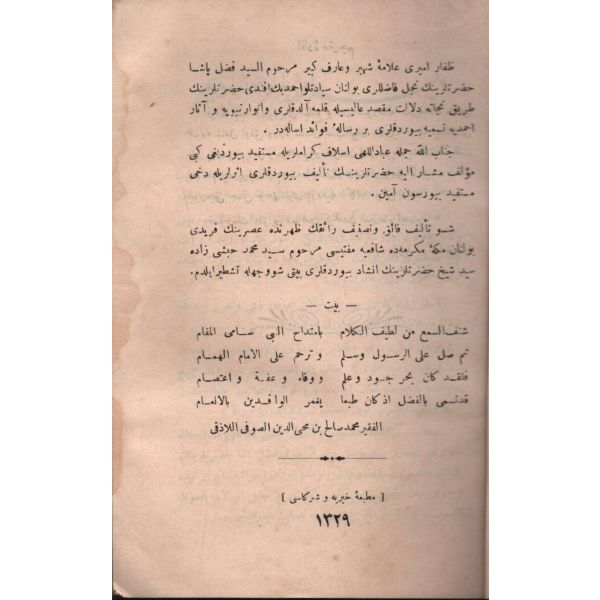 ظفار اميرى علامهٔ شهير وعارف كبير مرحوم السيد فضل پاشا
حضرتلرينك نجل فاضللرى بولنان سيادتلو احمد بك افندى حضرتلرينك
طريق نجاته دلالت مقصد عاليسيله قلمه آلدقلرى وانوار نبويه و آثار
احمديه تسميه بيوردقلرى بر رسالهٔ فوائد اساله در .
جناب الله جمله عباد اللهى اسلاف كراملريله مستفيد بيورديغى كبى
مؤلف مشار اليه حضرتلرينك تأليف بيوردقلرى اثرلريله دخى
مستفيد بيورسون آمين .
شو تأليف فائق وتصنيف رائقك ظهرنده عصرينك فريدى
بولنان مكهٔ مكرمه ده شافعيه مفتيسى مرحوم سيد محمد حبشى زاده
سيد شيخ حضرتلرينك انشاد بيوردقلرى بيتى شو وجهله تشطير ايلدم.
— بيت —
شنف السمع من لطيف الكلام بامتداح النبى سامى المقام
ثم صل على الرسول وسلم وترحم على الامام الهمام
فلقد كان بحر جود وعلم ووقاء وعفة واعتصام
قد تسمى بالفضل اذ كان طبعا يغمر الوافدين بالانعام
الفقير محمد صالح بن محى الدين الصوفى اللاذقى
[ مطبعهٔ خيريه و شركاسى ]
١٣٢٩